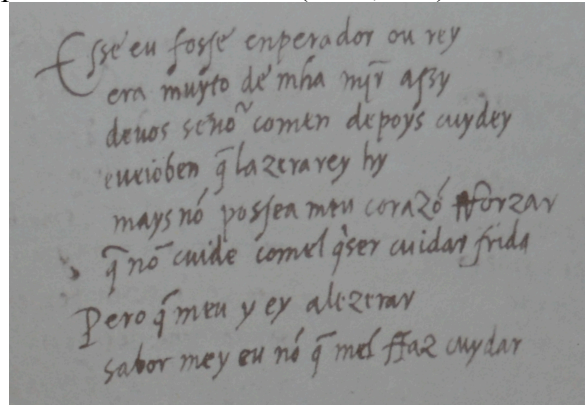 Esse eu fosse enperador ou rey
era muyto de mha mir̃ assy
deuos seño᷑ comen depoys cuydey
eueioben q̃ lazerarey hy
mays nó possea meu corazó fforzar
q̃ nõ cuide comel q̃ser cuidar
Pero q̃ meu y ey alezerar
sabor mey eu nó q̃ mel ffaz cuydar